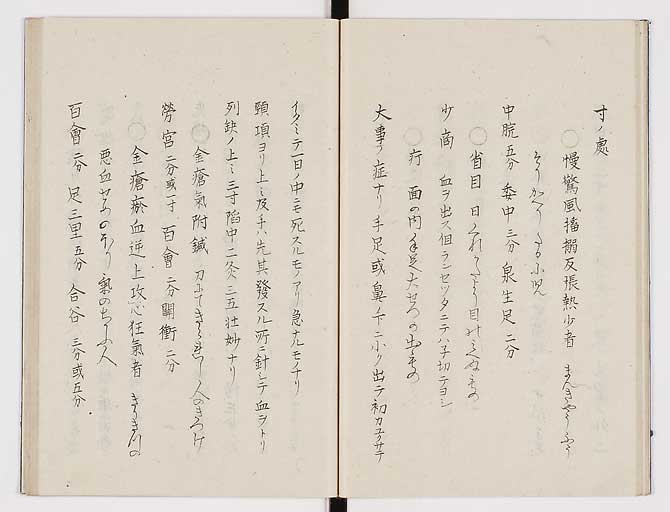 寸ノ處
〇慢驚風搐搦反張熱少者 まんきやうふう
そりかへりたる小児
中脘五分 委中三分 泉生足二分
〇雀目 日くれに
少商 血ヲ出ス但ランセツタニテハ子切テヨシ
〇疔 面の内手足大せつの出もの
大事ノ症ナリ手足或鼻ノ下ニ小ク出テ初カユクサテ
イタミテ一日ノ中ニモ死スルモノアリ急ナルモノナリ
頸項ヨリ上ニ及ナハ先其發スル所ニ針シテ血ヲトリ
列缺ノ上ミ三寸陷中ニ灸三五壮妙ナリ
〇金瘡氣附鍼 刀にてきられ 人のきつけ
勞宮二分或一寸 百會二分 關衝二分
〇金瘡瘀血逆上攻心狂氣者 きりきつの
悪血 のぼり氣のちかふ人
百會二分 足三里五分 合谷三分或五分